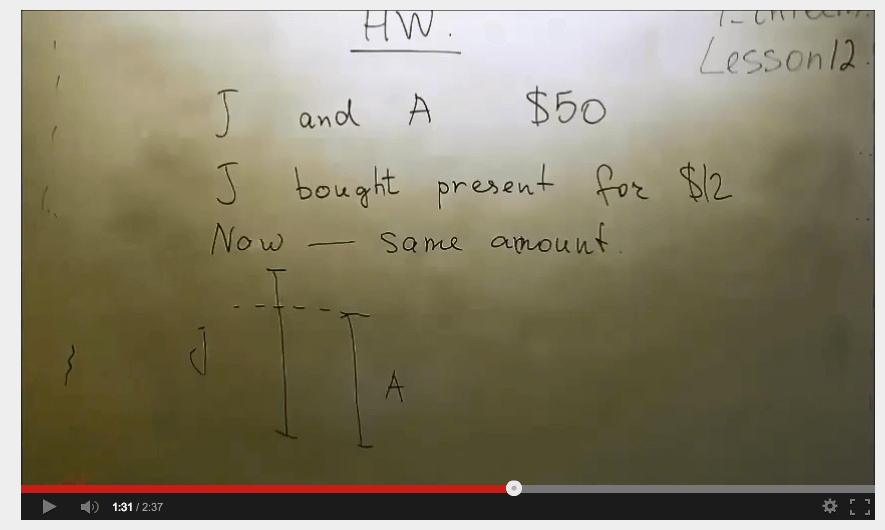 HW.
Lesson 12
J and A $50
J bought present for $12
Now — same amount.
J
A
1:31 / 2:37